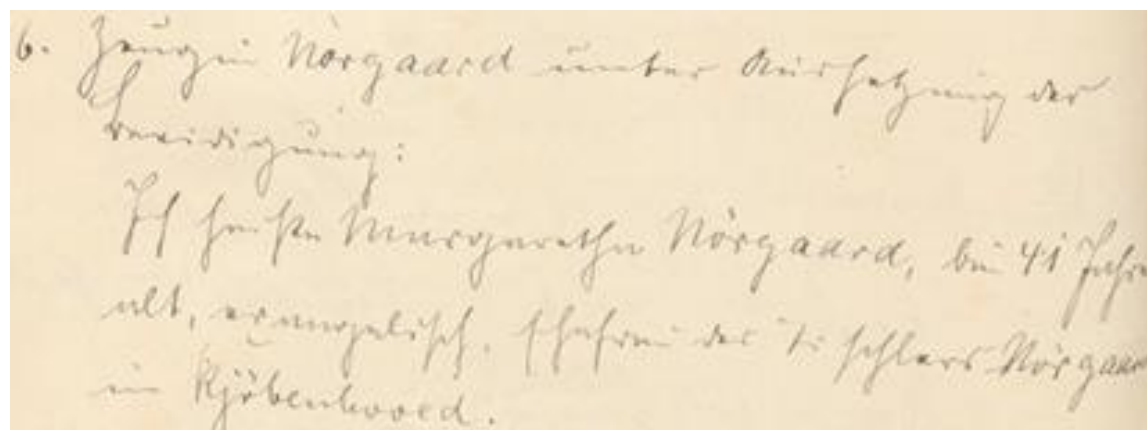 6. Zeugin Nörgaard unter Aussetzung der
Beeidigung:
Ich heiße Margarethe Nörgaard, bin 41 Jahre
alt, evangelisch, Ehefrau des Tischlers Nörgaar
in Kjöbenhoved.